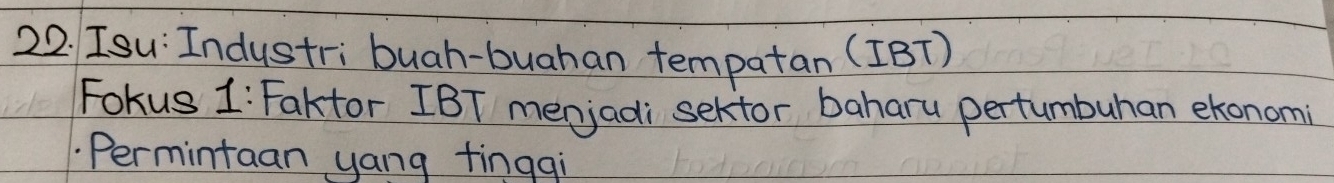 22. Isu: Industri buah-buahan tempatan (IBT)
Fokus 1: Faktor IBT menjadi sektor baharu pertumbuhan ekonomi
· Permintaan yang tinggi